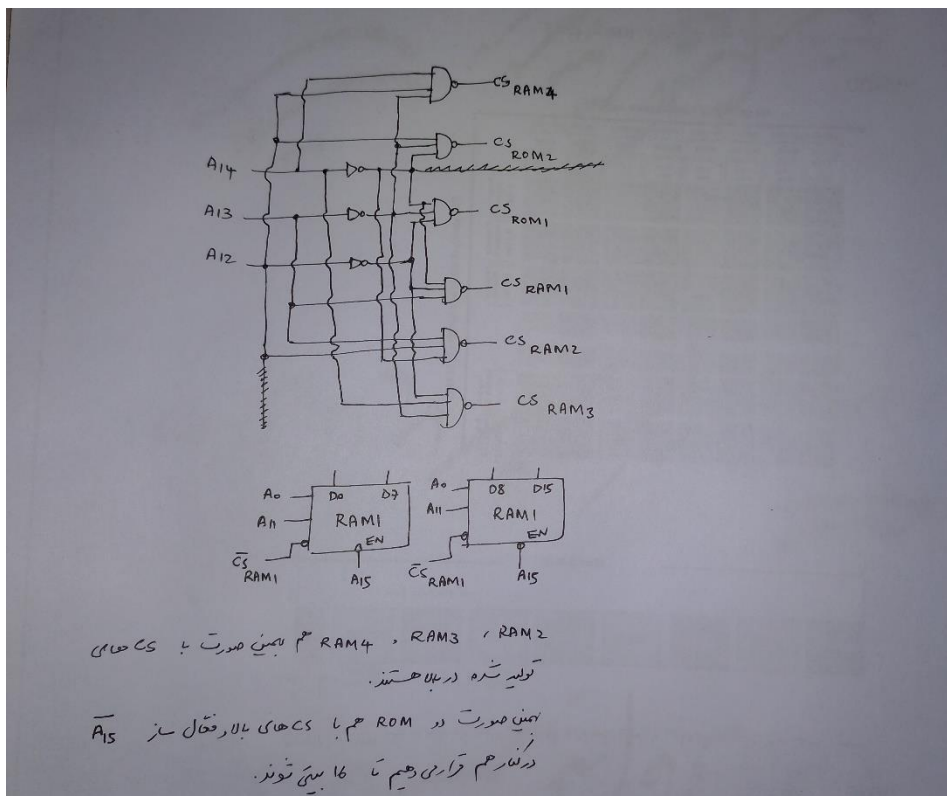 CS RAM4
CS ROM2
A14
A13
CS ROM1
A12
CS RAM1
CS RAM2
CS RAM3
A0 D0 D7
A11 RAM1
EN
C̅S̅ RAM1
A15
A0 D8 D15
A11 RAM1
EN
C̅S̅ RAM1
A15
RAM2 ، RAM3 ، RAM4 هم بهمین صورت با CS های
تولید شده در بالا هستند.
بهمین صورت دو ROM هم با CS های بالا و فعال ساز A̅1̅5̅
در کنار هم قرار می دهیم تا 16 بیتی شوند.